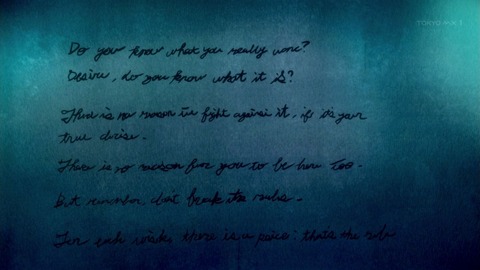 TOKYO MX 1
Do you know what you really want?
Desire, do you know what it is?
There is no reason to fight against it, if it's your
true desire.
There is no reason for you to be here too.
But remember, don't break the rules.
For each wish, there is a price: that's the rule